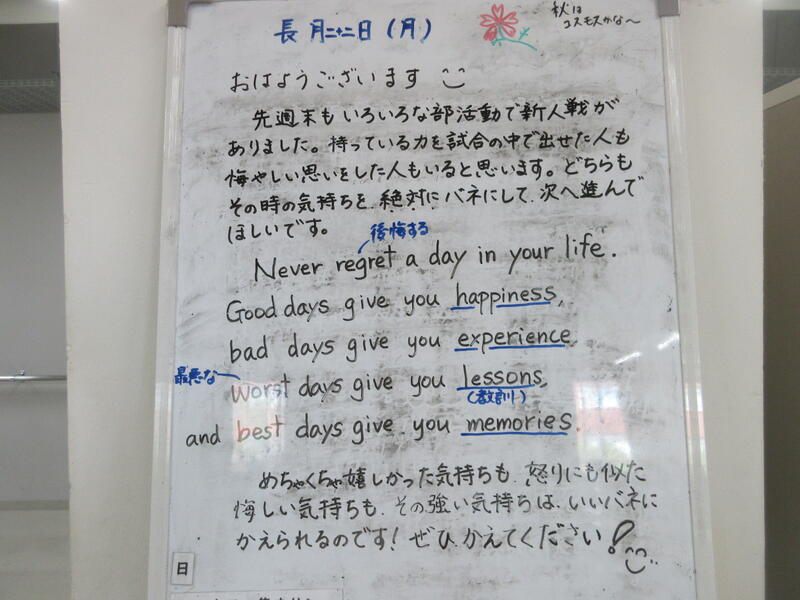 長月二十二日(月)
秋は
コスモスかな〜
おはようございます
先週末もいろいろな部活動で新人戦が
ありました。持っている力を試合の中で出せた人も
悔やしい思いをした人もいると思います。どちらも
その時の気持ちを、絶対にバネにして、次へ進んで
ほしいです。
後悔する
Never regret a day in your life.
Good days give you happiness,
bad days give you experience,
最悪な
worst days give you lessons,
(教訓)
and best days give you memories.
めちゃくちゃ嬉しかった気持ちも、怒りにも似た
悔しい気持ちも、その強い気持ちは、いいバネに
かえられるのです!ぜひ、かえてください!
日